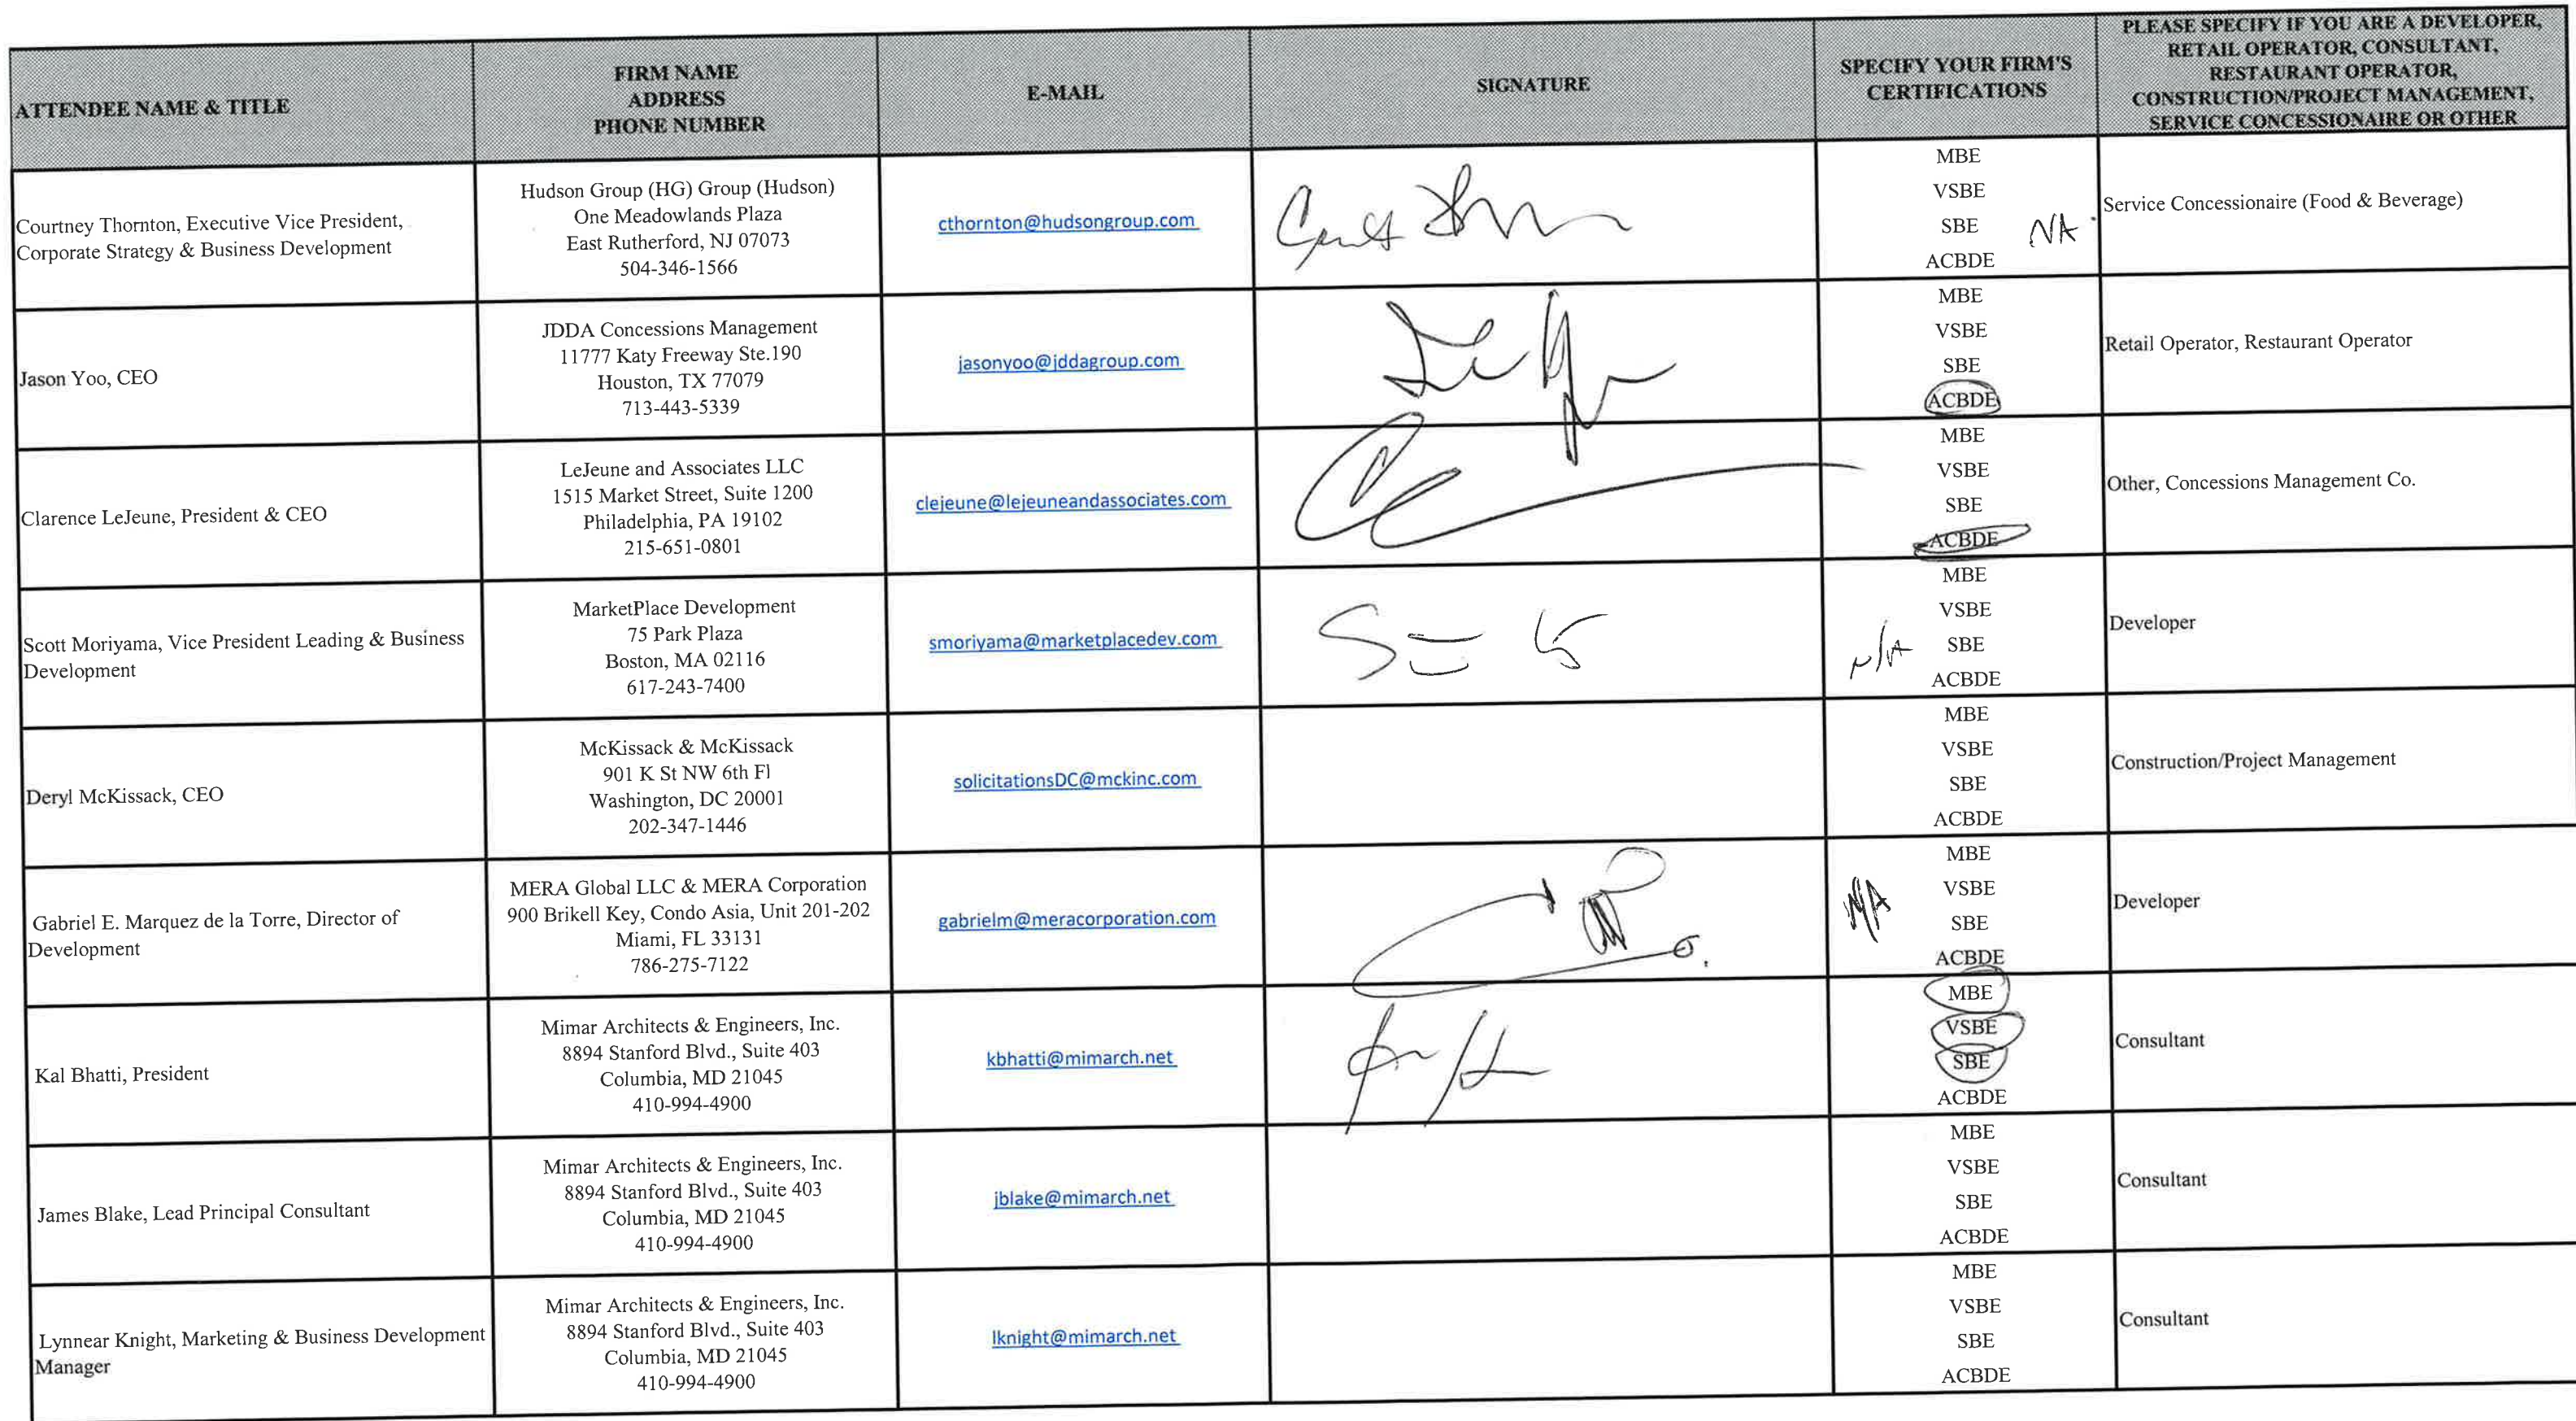 ATTENDEE NAME & TITLE
FIRM NAME
ADDRESS
PHONE NUMBER
E-MAIL
SIGNATURE
SPECIFY YOUR FIRM'S
CERTIFICATIONS
PLEASE SPECIFY IF YOU ARE A DEVELOPER,
RETAIL OPERATOR, CONSULTANT,
RESTAURANT OPERATOR,
CONSTRUCTION/PROJECT MANAGEMENT,
SERVICE CONCESSIONAIRE OR OTHER
Courtney Thornton, Executive Vice President,
Corporate Strategy & Business Development
Hudson Group (HG) Group (Hudson)
One Meadowlands Plaza
East Rutherford, NJ 07073
504-346-1566
cthornton@hudsongroup.com
MBE
VSBE
SBE
ACBDE
NA
Service Concessionaire (Food & Beverage)
Jason Yoo, CEO
JDDA Concessions Management
11777 Katy Freeway Ste.190
Houston, TX 77079
713-443-5339
jasonyoo@jddagroup.com
MBE
VSBE
SBE
ACBDE
Retail Operator, Restaurant Operator
Clarence LeJeune, President & CEO
LeJeune and Associates LLC
1515 Market Street, Suite 1200
Philadelphia, PA 19102
215-651-0801
clejeune@lejeuneandassociates.com
MBE
VSBE
SBE
ACBDE
Other, Concessions Management Co.
Scott Moriyama, Vice President Leading & Business
Development
MarketPlace Development
75 Park Plaza
Boston, MA 02116
617-243-7400
smoriyama@marketplacedev.com
N/A
MBE
VSBE
SBE
ACBDE
Developer
Deryl McKissack, CEO
McKissack & McKissack
901 K St NW 6th Fl
Washington, DC 20001
202-347-1446
solicitationsDC@mckinc.com
MBE
VSBE
SBE
ACBDE
Construction/Project Management
Gabriel E. Marquez de la Torre, Director of
Development
MERA Global LLC & MERA Corporation
900 Brikell Key, Condo Asia, Unit 201-202
Miami, FL 33131
786-275-7122
gabrielm@meracorporation.com
N/A
MBE
VSBE
SBE
ACBDE
Developer
Kal Bhatti, President
Mimar Architects & Engineers, Inc.
8894 Stanford Blvd., Suite 403
Columbia, MD 21045
410-994-4900
kbhatti@mimarch.net
MBE
VSBE
SBE
ACBDE
Consultant
James Blake, Lead Principal Consultant
Mimar Architects & Engineers, Inc.
8894 Stanford Blvd., Suite 403
Columbia, MD 21045
410-994-4900
jblake@mimarch.net
MBE
VSBE
SBE
ACBDE
Consultant
Lynnear Knight, Marketing & Business Development
Manager
Mimar Architects & Engineers, Inc.
8894 Stanford Blvd., Suite 403
Columbia, MD 21045
410-994-4900
lknight@mimarch.net
MBE
VSBE
SBE
ACBDE
Consultant